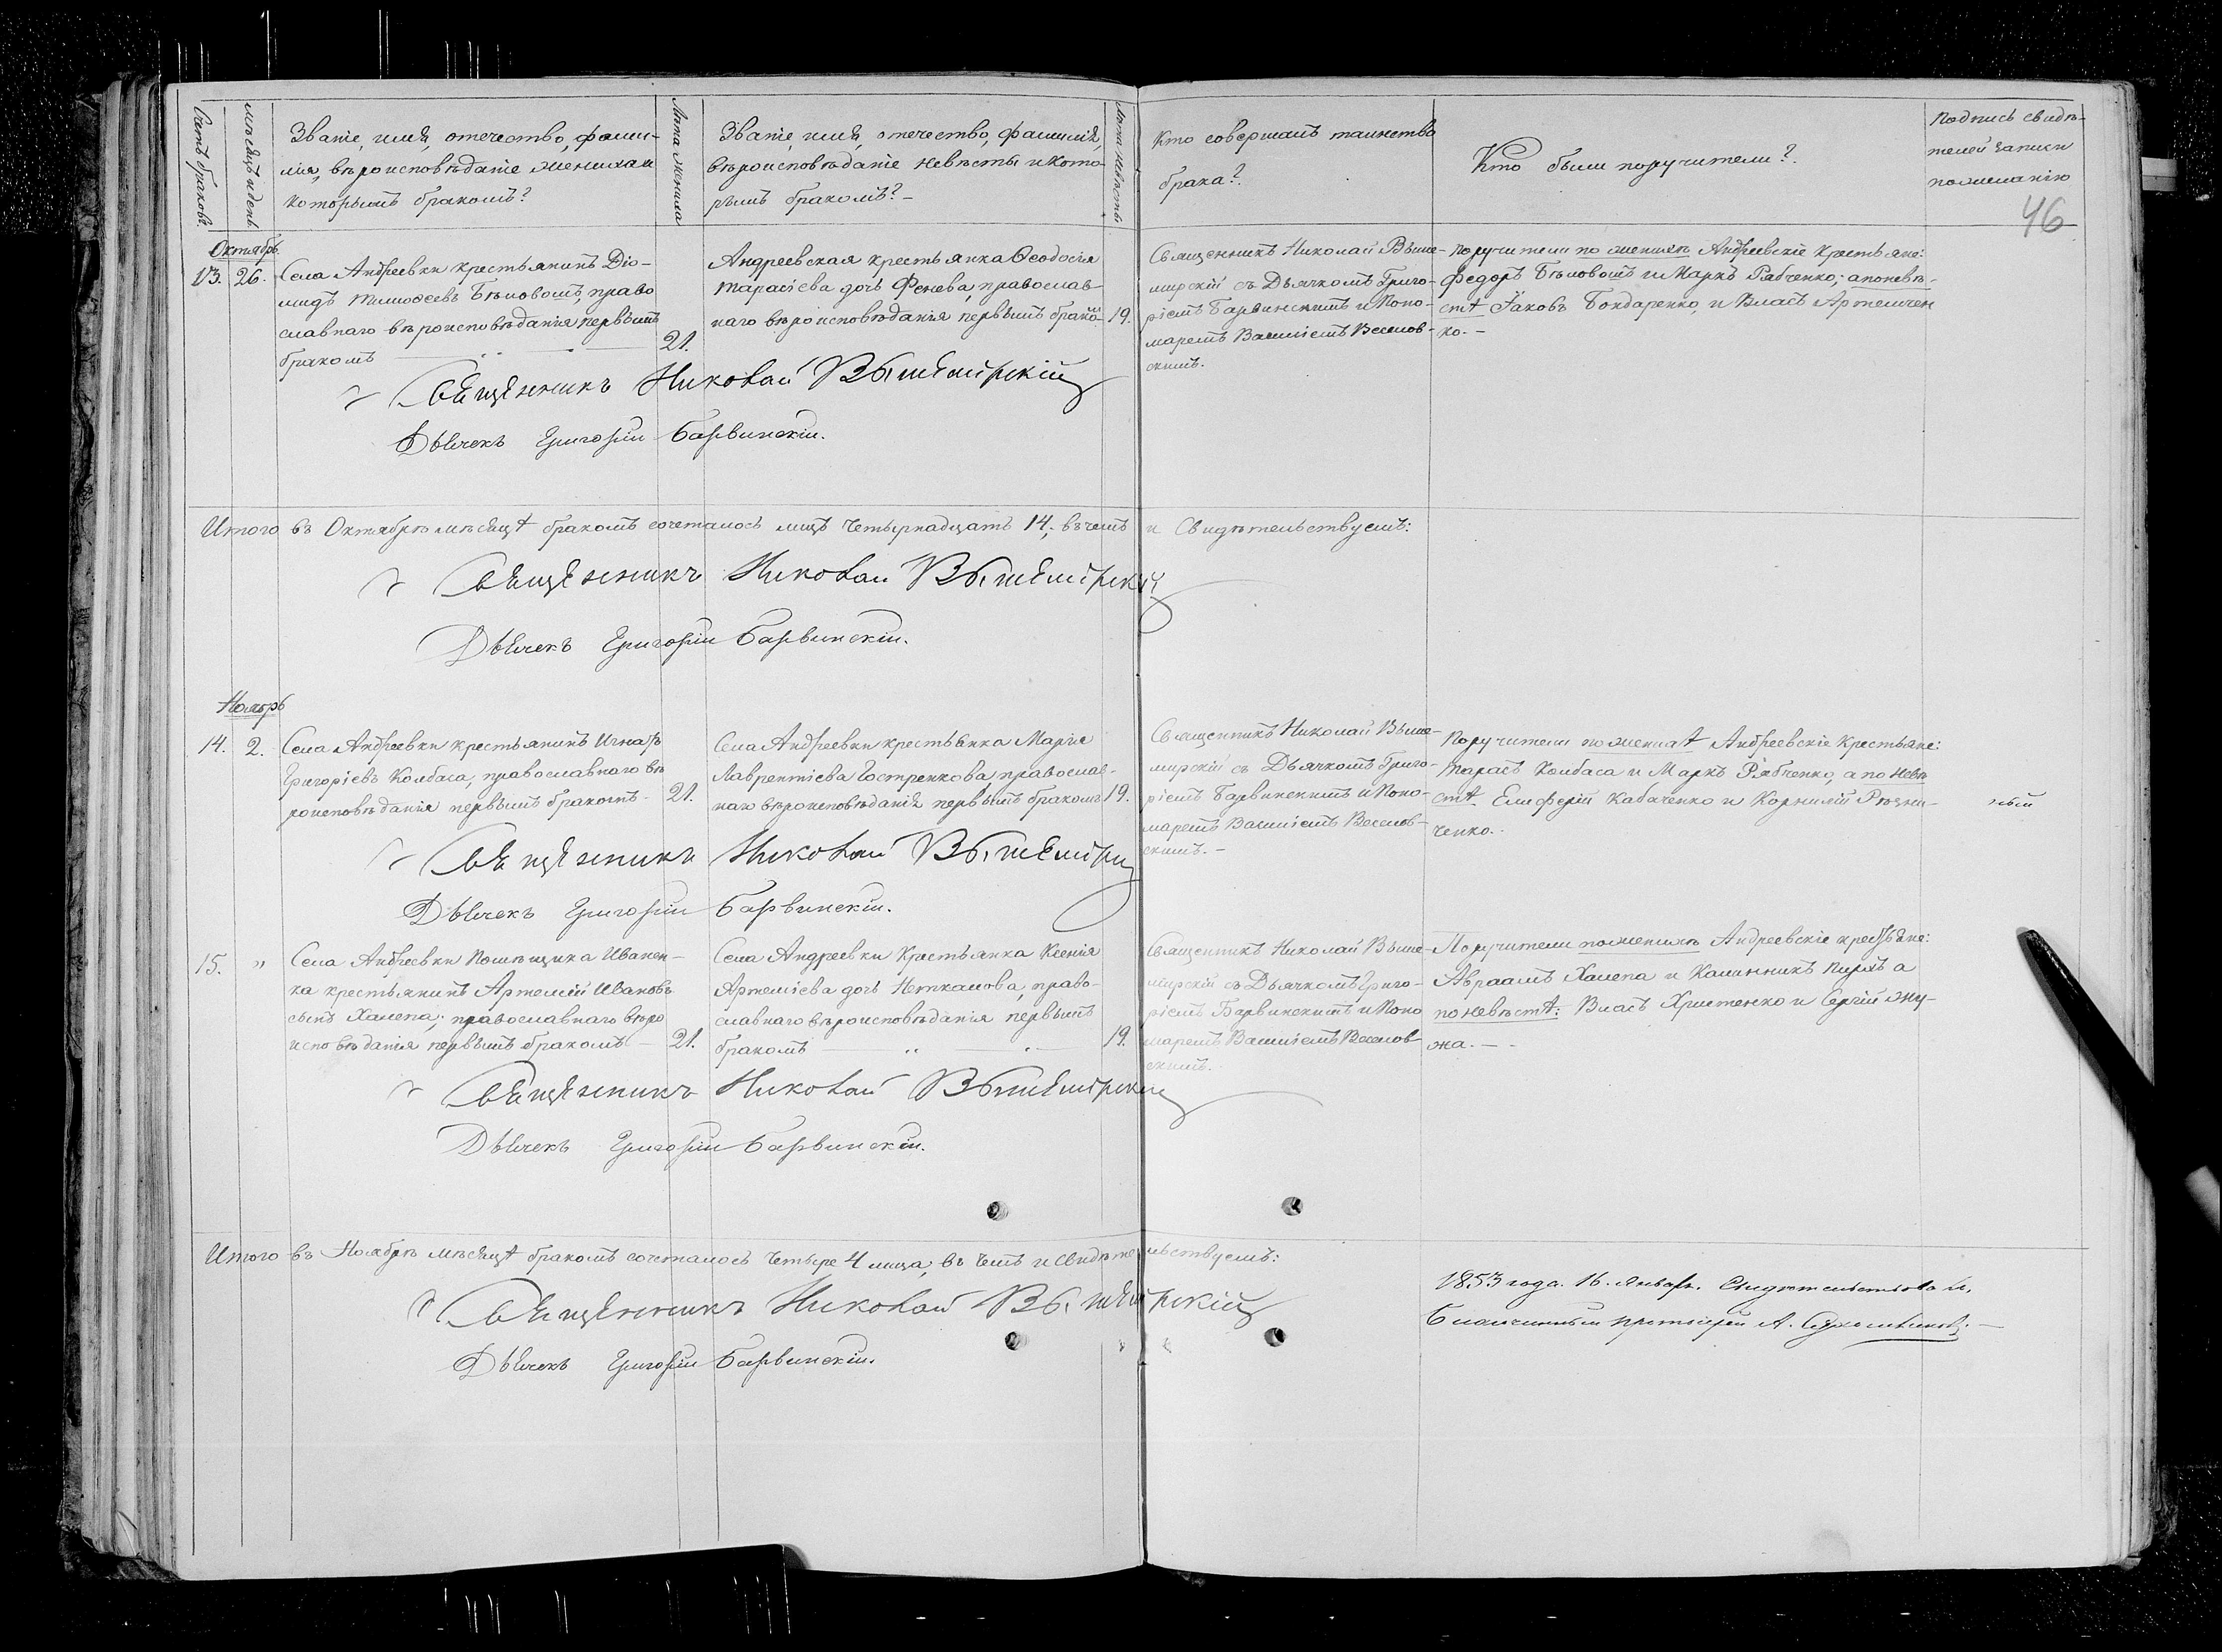 Счетъ браковъ.
мѣсяцъ и день
Званіе, имя, отечество, фами-
лія, вѣроисповѣданіе жениха и
которымъ бракомъ?
Лѣта жениха
Званіе, имя, отечество, фамилія,
вѣроисповѣданіе невѣсты и кото-
рымъ бракомъ? –
Лѣта невѣсты
Кто совершалъ таинство
брака?
Кто были поручители?
Подпись свидѣ-
телей записи
по желанію
46
Октябрь
13. 26.
Села Андреевки крестьянинъ Діо-
мидъ Тимофеевъ Бѣловолъ, право
славнаго вѣроисповѣданія первымъ
бракомъ
21.
Андреевская крестьянка Ѳеодосія
Тарасіева дочь Фенева, православ-
наго вѣроисповѣданія первымъ браком
19.
Священникъ Николай Выше-
мирскій съ Дьячкомъ Григо-
ріемъ Барвинскимъ и Поно-
маремъ Василіемъ Веселов-
скимъ.
Поручители по женихѣ Андреевскіе крестьяне:
Федоръ Бѣловолъ и Маркъ Рябченко; а по невѣ-
стѣ Іаковъ Бондаренко, и Власъ Артемчен
ко. –
Священникъ Николай Вышемірскій
Дьячекъ Григорій Барвинскій.
Итого въ Октябрѣ мѣсяцѣ бракомъ сочеталось лицъ четырнадцать 14, въ чемъ и Свидѣтельствуемъ:
Священникъ Николай Вышемірскій
Дьячекъ Григорій Барвинскій.
Ноябрь
14. 2.
Села Андреевки крестьянинъ Игнатъ
Григоріевъ Колбаса, православнаго вѣ
роисповѣданія первымъ бракомъ –
21.
Села Андреевки крестьянка Марія
Лаврентіева Гостренкова, православ-
наго вѣроисповѣданія первымъ бракомъ
19.
Священникъ Николай Выше-
мирскій съ Дьячкомъ Григо-
ріемъ Барвинскимъ и Поно-
маремъ Василіемъ Веселов-
скимъ. –
Поручители по женихѣ Андреевскіе крестьяне:
Тарасъ Колбаса и Маркъ Рябченко, а по невѣ
стѣ Елиферій Кабаченко и Корнилій Рѣзни-
ченко.
Священникъ Николай Вышемірскій
Дьячекъ Григорій Барвинскій.
15. "
Села Андреевки Помѣщика Иванен-
ка крестьянинъ Артемій Ивановъ
сынъ Халепа; православнаго вѣро
исповѣданія первымъ бракомъ –
21.
Села Андреевки Крестьянка Ксенія
Артеміева дочь Неткачова, право-
славнаго вѣроисповѣданія первымъ
бракомъ
19.
Священникъ Николай Выше-
мирскій съ Дьячкомъ Григо-
ріемъ Барвинскимъ и Поно
маремъ Василіемъ Веселов-
скимъ.
Поручители по женихѣ Андреевскіе крестьяне:
Авраамъ Халепа и Калинникъ а
по невѣстѣ: Власъ Христенко и Сергій
Священникъ Николай Вышемірскій
Дьячекъ Григорій Барвинскій.
Итого въ Ноябрѣ мѣсяцѣ бракомъ сочеталось четыре 4 лица, въ чемъ и свидѣтельствуемъ:
Священникъ Николай Вышемірскій
Дьячекъ Григорій Барвинскій.
1853 года. 16. Января. Свидѣтельствовалъ,
Благочинный протоіерей А.